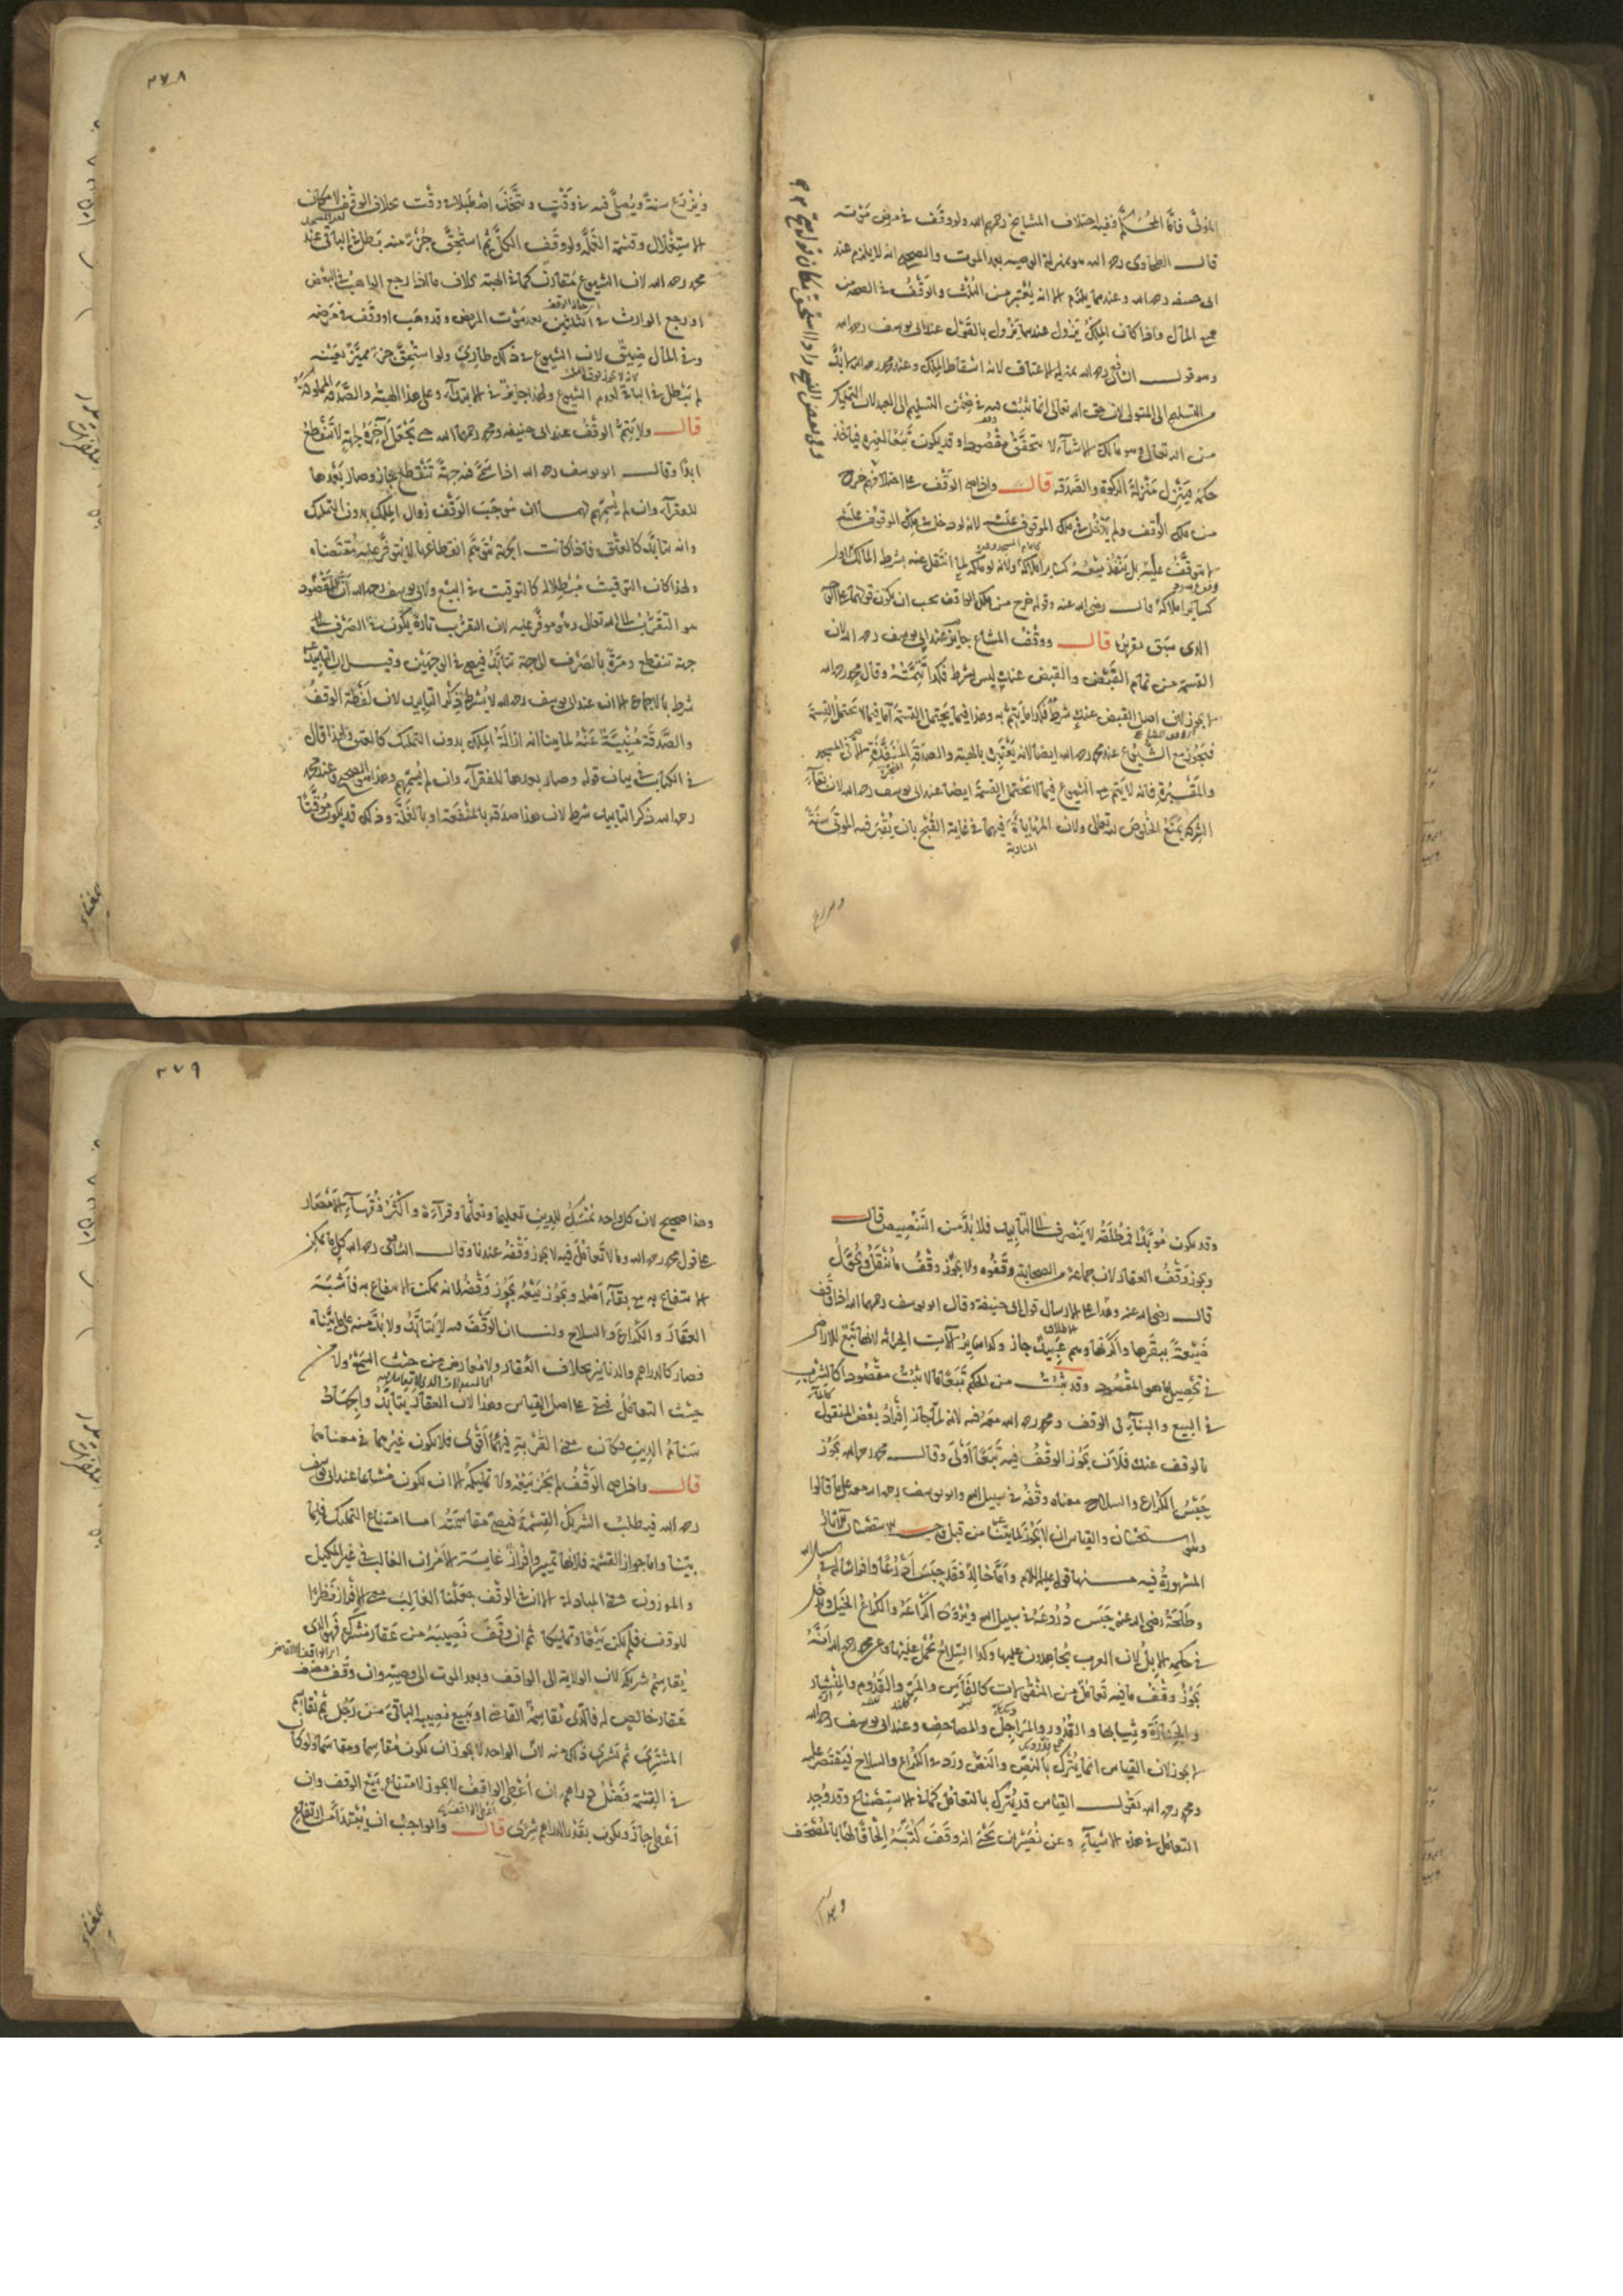 المولى فاما المحكم ففيه اختلاف المشايخ رحمهم الله ولو وقف في مرض موته
قال الطحاوي رحمه الله هو بمنزلة الوصية بعد الموت والصحيح انه لا يلزم عند
ابي حنيفة رحمه الله وعندهما يلزم الا انه يعتبر من الثلث والوقف في الصحة من
جميع المال واذا كان الملك يزول عندهما يزول بالقول عند ابي يوسف رحمه الله
وهو قول الشافعي رحمه الله بمنزلة الاعتاق لانه اسقاط الملك وعند محمد رحمه الله لابد
من التسليم الى المتولي لان حق الله تعالى انما يثبت فيه في ضمن التسليم الى العبد لان التمليك
من الله تعالى وهو مالك الاشياء لا يتحقق مقصودا وقد يكون تبعا لغيره فياخذ
حكمه فينزل منزلة الزكوة والصدقة قال واذا صح الوقف على اختلافهم خرج
من ملك الواقف ولم يدخل في ملك الموقوف عليه لانه لو دخل في ملك الموقوف عليه
لا يتوقف عليه بل ينفذ بيعه كساير املاكه ولانه لو ملكه لما انتقل عنه بشرط المالك الاول
كساير املاكه قال رضي الله عنه وقوله خرج من ملك الواقف يجب ان يكون قولهما على الوجه
الذي سبق تقريره قال ووقف المشاع جايز عند ابي يوسف رحمه الله لان
القسمة من تمام القبض والقبض عنده ليس بشرط فكذا تتمته وقال محمد رحمه الله
لا يجوز لان اصل القبض عنده شرط فكذا ما يتم به وهذا فيما يحتمل القسمة اما فيما لا يحتمل القسمة
فيجوز مع الشيوع عند محمد رحمه الله ايضا لانه يعتبره بالهبة والصدقة المنفذة الا في المسجد
والمقبرة فانه لا يتم مع الشيوع فيما لا يحتمل القسمة ايضا عند ابي يوسف رحمه الله لان بقاء
الشركة يمنع الخلوص لله تعالى ولان المهاياة فيهما في غاية القبح بان يقبر فيه الموتى سنة
المناوبة
ويزرع
٢٧٨
ويزرع سنة ويصلى فيه في وقت ويتخذ اصطبلا في وقت بخلاف الوقف لامكان
الاستغلال وقسمة الغلة ولو وقف الكل ثم استحق جزء منه بطل في الباقي عند
محمد رحمه الله لان الشيوع مقارن كما في الهبة بخلاف ما اذا رجع الواهب في البعض
او رجع الوارث في الثلثين بعد موت المريض وقد وهب او وقف في مرضه
وفي المال ضيق لان الشيوع في ذلك طارئ ولو استحق جزء مميز بعينه
لم يبطل في الباقي لعدم الشيوع ولهذا جاز في الابتداء وعلى هذا الهبة والصدقة المملوكة
قال ولا يتم الوقف عند ابي حنيفة ومحمد رحمهما الله حتى يجعل آخره لجهة لا تنقطع
ابدا وقال ابو يوسف رحمه الله اذا سمى فيه جهة تنقطع جاز وصار بعدها
للفقراء وان لم يسمهم لهما ان موجب الوقف زوال الملك بدون التمليك
وانه يتابد كالعتق فاذا كانت الجهة يتوهم انقطاعها لا يتوفر عليه مقتضاه
ولهذا كان التوقيت مبطلا له كالتوقيت في البيع ولابي يوسف رحمه الله ان المقصود
هو التقرب الى الله تعالى وهو موفر عليه لان التقرب تارة يكون في الصرف الى
جهة تنقطع ومرة بالصرف الى جهة تتابد فيصح في الوجهين وقيل ان التابيد
شرط بالاجماع الا ان عند ابي يوسف رحمه الله لا يشترط ذكر التابيد لان لفظة الوقف
والصدقة منبئة عنه لما بينا انه ازالة الملك بدون التمليك كالعتق ولهذا قال
في الكتاب في بيان قوله وصار بعدها للفقراء وان لم يسمهم وهذا هو الصحيح وعند محمد
رحمه الله ذكر التابيد شرط لان هذا صدقة بالمنفعة او بالغلة وذلك قد يكون موقتا
وقد يكون مؤبدا فمطلقه لا ينصرف الى التابيد فلا بد من التنصيص قال
ويجوز وقف العقار لان جماعة من الصحابة وقفوه ولا يجوز وقف ما ينقل ويحول
قال رضي الله عنه وهذا على الارسال قول ابي حنيفة وقال ابو يوسف رحمهما الله اذا وقف
ضيعة ببقرها واكرتها وهم عبيده جاز وكذا ساير آلات الحراثة لانها تبع للارض
في تحصيل ما هو المقصود وقد يثبت من الحكم تبعا ما لا يثبت مقصودا كالشرب
في البيع والبناء في الوقف ومحمد رحمه الله معه فيه لانه لما جاز افراد بعض المنقول
بالوقف عنده فلان يجوز الوقف فيه تبعا اولى وقال محمد رحمه الله يجوز
حبس الكراع والسلاح معناه وقفه في سبيل الله وابو يوسف رحمه الله معه على ما قالوا
وهو استحسان والقياس ان لا يجوز لما بينا من قبل وجه الاستحسان الآثار
المشهورة فيه منها قوله عليه السلام واما خالد فقد حبس ادرعا وافراسا له في سبيل الله
وطلحة رضي الله عنه حبس دروعه في سبيل الله ويروى اكراعه والكراع الخيل ويدخل
في حكمه الابل لان العرب يجاهدون عليها وكذا السلاح يحمل عليها وعن محمد رحمه الله انه
يجوز وقف ما فيه تعامل من المنقولات كالفاس والمر والقدوم والمنشار
والجنازة وثيابها والقدور والمراجل والمصاحف وعند ابي يوسف رحمه الله
لا يجوز لان القياس انما يترك بالنص والنص ورد في الكراع والسلاح فيقتصر عليه
ومحمد رحمه الله يقول القياس قد يترك بالتعامل كما في الاستصناع وقد وجد
التعامل في هذه الاشياء وعن نصير بن يحيى انه وقف كتبه الحاقا لها بالمصحف
وهذا
٢٧٩
وهذا صحيح لان كل واحد يمسك للدين تعليما وتعلما وقراءة واكثر فقهاء الامصار
على قول محمد رحمه الله وما لا تعامل فيه لا يجوز وقفه عندنا وقال الشافعي رحمه الله كل ما يمكن
الانتفاع به مع بقاء اصله ويجوز بيعه يجوز وقفه لانه يمكن الانتفاع به فاشبه
العقار والكراع والسلاح ولنا ان الوقف فيه لا يتابد ولا بد منه على ما بيناه
فصار كالدراهم والدنانير بخلاف العقار ولا معارض من حيث السمع ولا من
حيث التعامل فبقي على اصل القياس وهذا لان العقار يتابد والجهاد
سنام الدين فكان معنى القربة فيهما اقوى فلا يكون غيرهما في معناهما
قال واذا صح الوقف لم يجز بيعه ولا تمليكه الا ان يكون مشاعا عند ابي يوسف
رحمه الله فيطلب الشريك القسمة فيصح مقاسمته اما امتناع التمليك فلما
بينا واما جواز القسمة فلانها تمييز وافراز غاية الامر ان الغالب في غير المكيل
والموزون معنى المبادلة الا ان في الوقف جعلنا الغالب معنى الافراز نظرا
للوقف فلم يكن بيعا وتمليكا ثم ان وقف نصيبه من عقار مشترك فهو الذي
يقاسم شريكه لان الولاية الى الواقف وبعد الموت الى وصيه وان وقف نصف
عقار خالص له فالذي يقاسمه القاضي او يبيع نصيبه الباقي من رجل ثم يقاسم
المشتري ثم يشتري ذلك منه لان الواحد لا يجوز ان يكون مقاسما ومقاسما ولو كان
في القسمة فضل دراهم ان اعطى الواقف لا يجوز لامتناع بيع الوقف وان
اعطى جاز ويكون بقدر الدراهم شرى قال والواجب ان يبتدأ من ارتفاع